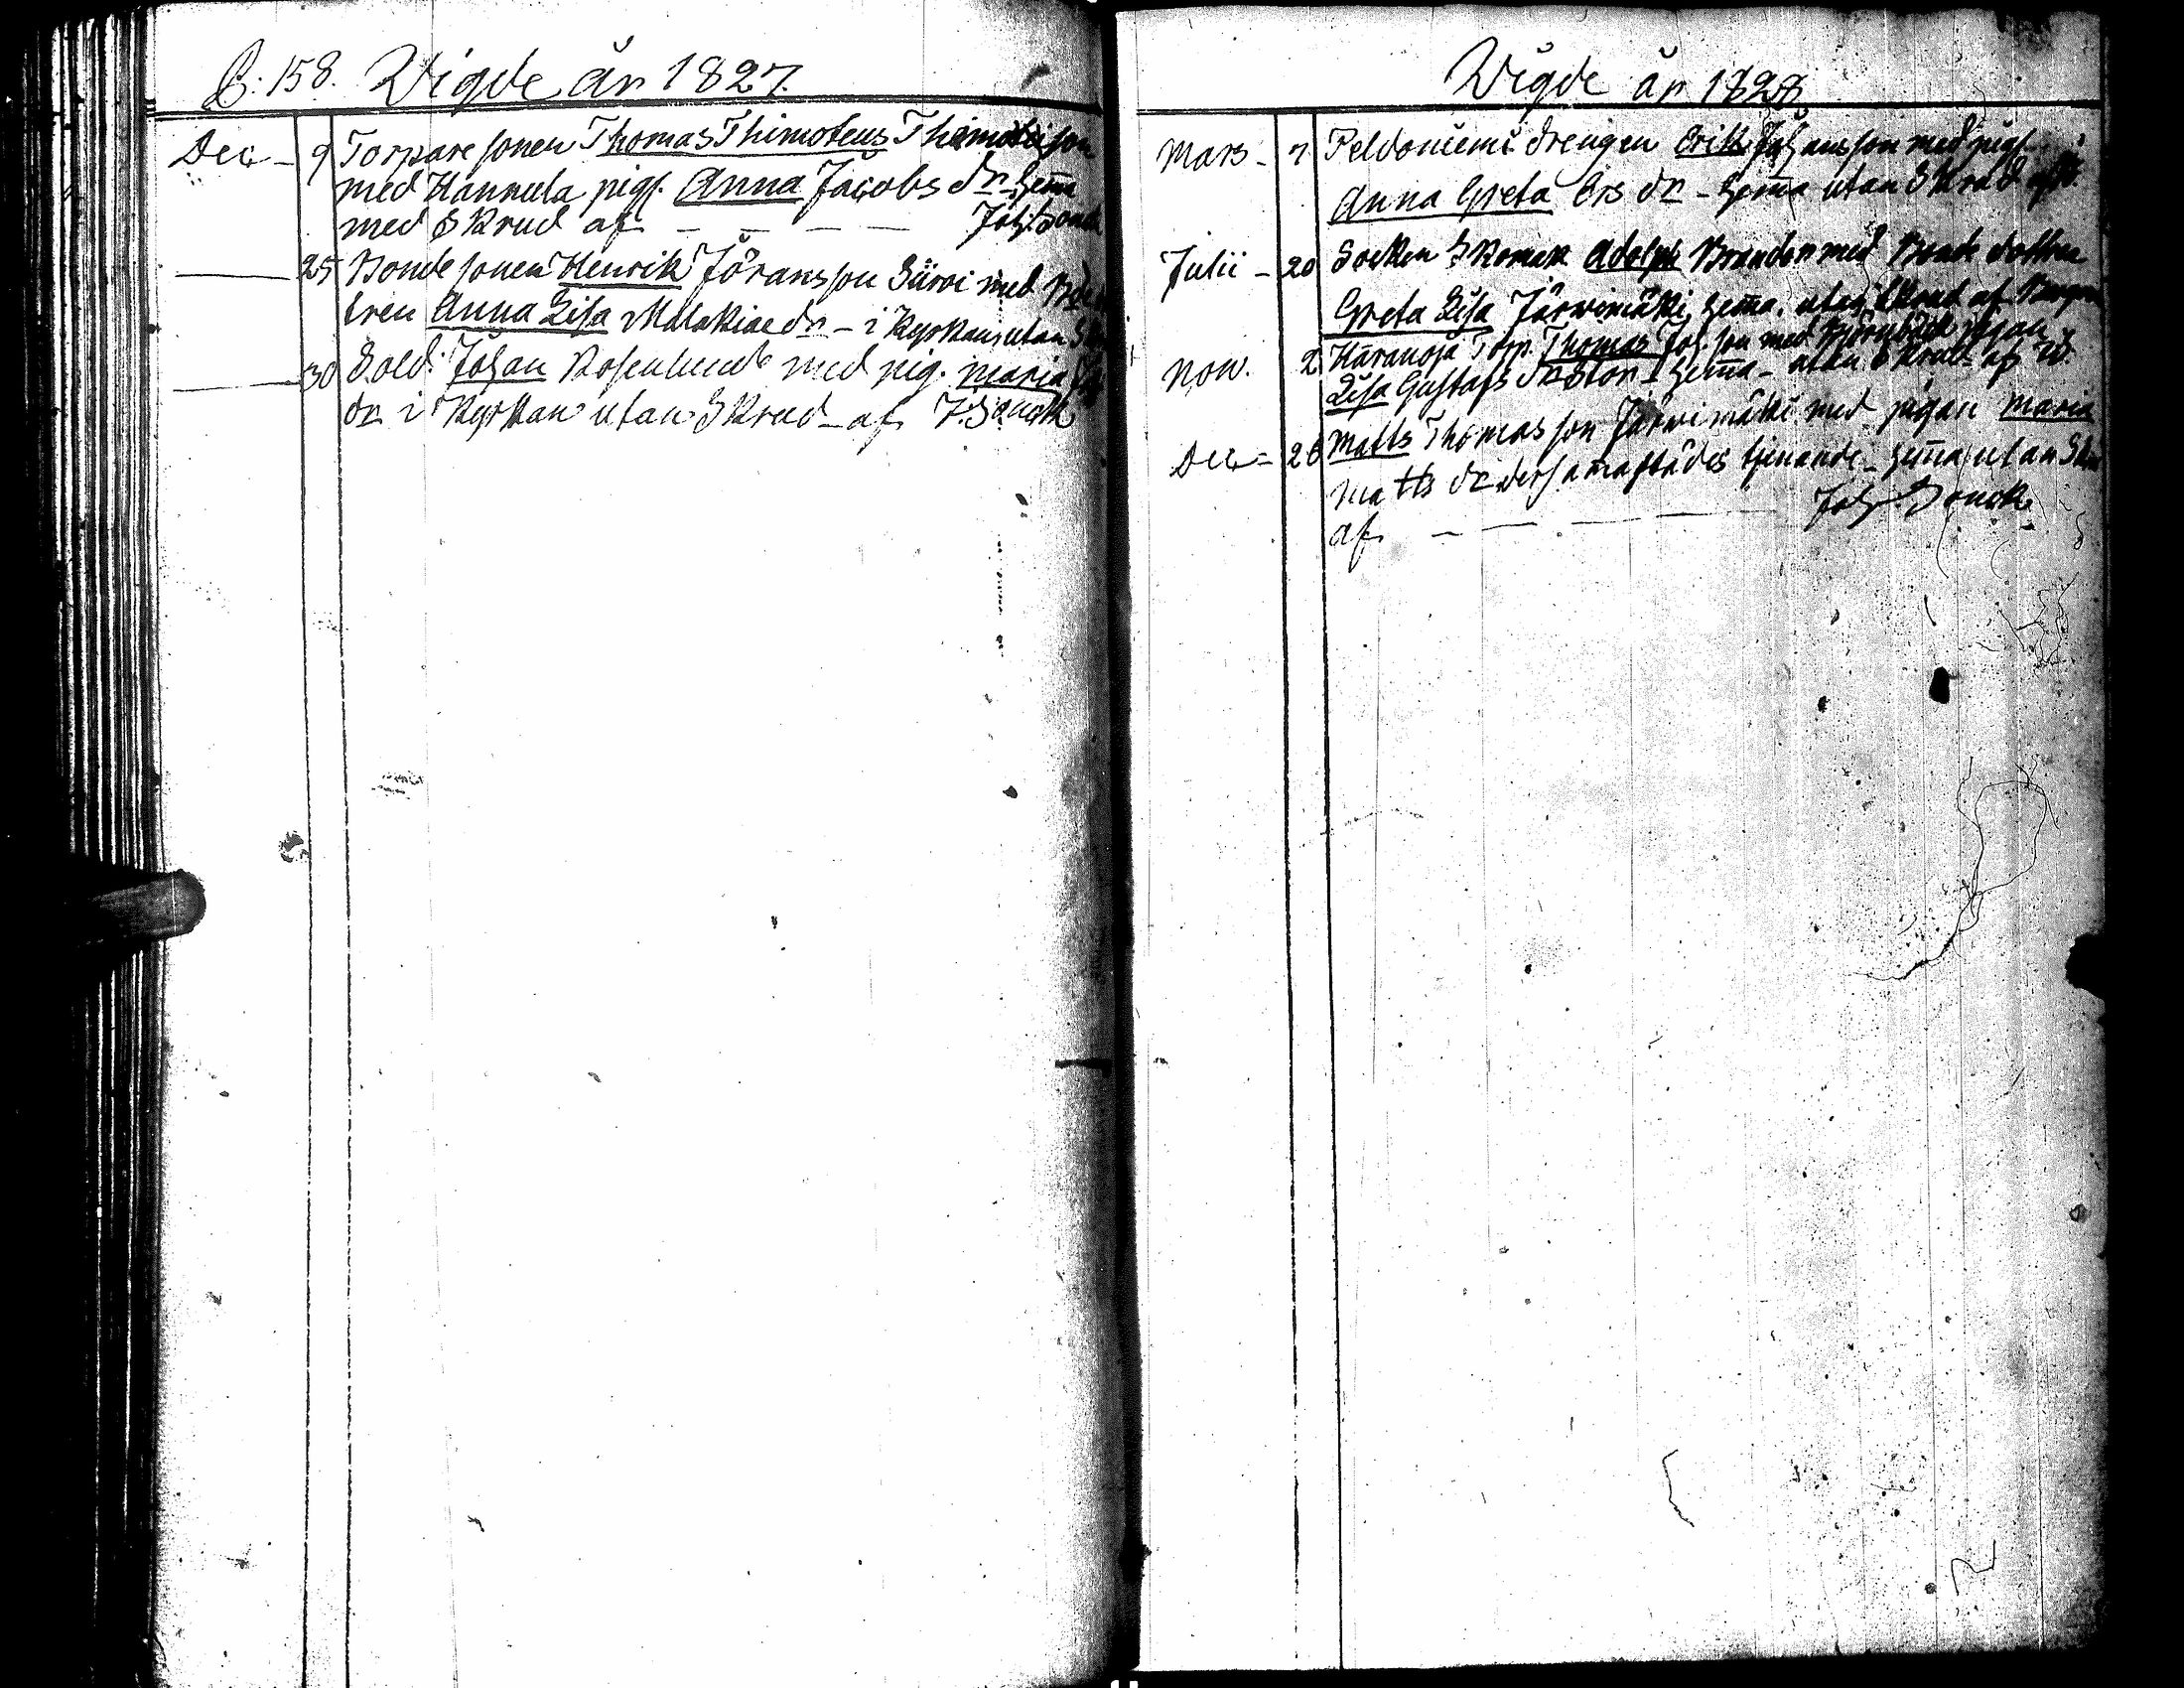 P. 158. Vigde år 1827.
Dec - 9 Torpare sonen Thomas Thimoteus Thimoteison
med Hannula pigs. Anna Jacobs dr hemma
med Skrud af - - - - Joh. Sonck
25 Bonde sonen Henrik Jöransson Siirvi med
tren Anna Lisa Malakiae dr - i Kyrkan utan
30 Sold. Johan Rosenlund med pig. Maria
dr i Kyrkan utan Skrud - af J. Sonck
Vigde år 1828.
Mars - 7 Peldoniemi drengen Erik Johansson med pigs.
Anna Greta Ers dr - hemma utan Skrud af
Julii - 20 Socken Skomak Adolph Brander med Bonde dottren
Greta Lisa Järvimäki, hemma, utan Skrud af
Nov. 2 Haranoja Torp. Thomas Joh. son med Björnbäck pigan
Lisa Gustafs dr Stor - hemma - utan Skrud af
Dec = 26 Matts Thomasson Järvimäki med pigan Maria
Matts dr dersammastädes tjenande - hemma utan
af - - - - Joh. Sonck